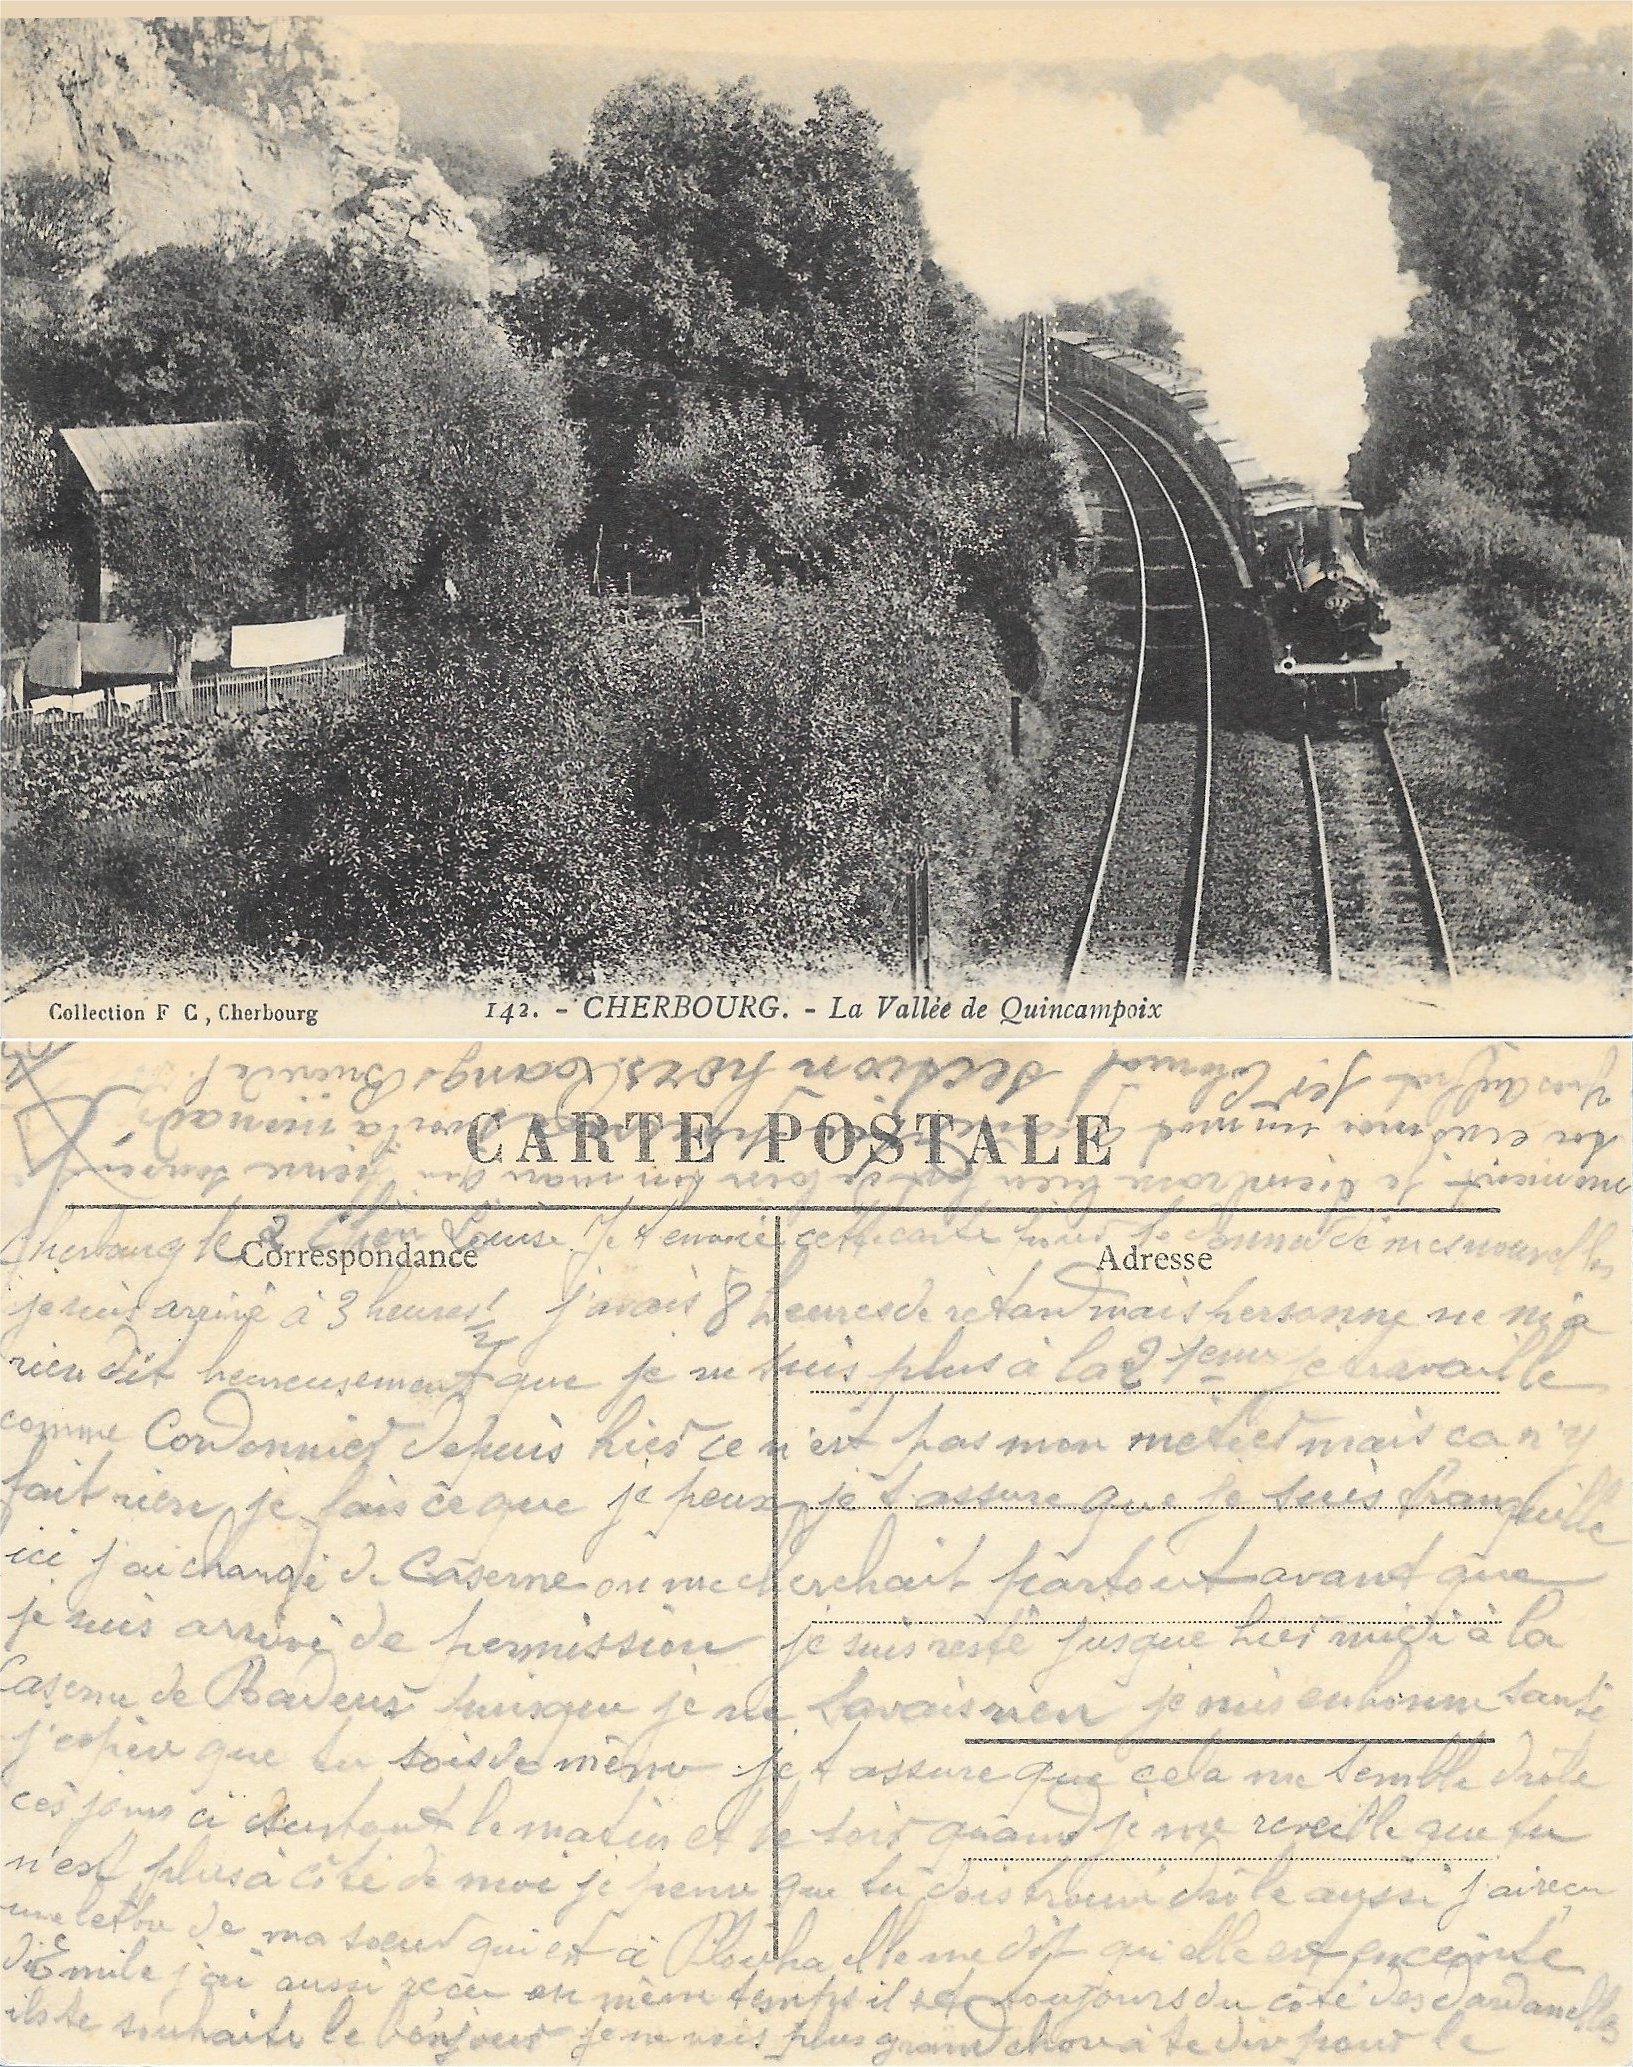 Collection F C, Cherbourg
142. - CHERBOURG. - La Vallée de Quincampoix
CARTE POSTALE
Correspondance
Adresse
Cherbourg le 2 Chère Louise Je t'envoie cette carte pour te donner de mes nouvelles
je suis arrivé à 3 heures 1/2 j'avais 8 heures de retard mais personne ne m'a
rien dit heureusement que je ne suis plus à la 2 je travaille
comme Cordonnier depuis hier ce n'est pas mon metier mais ca n'y
fait rien je fais ce que je peux je t'assure que je suis tranquille
ici j'ai changé de Caserne on me cherchait partout avant que
je suis arrivé de permission je suis resté jusque hier midi à la
Caserne de puisque je ne savais rien je suis en bonne santé
j'espère que tu sois de même je t'assure que cela me semble drôle
ces jours ci surtout le matin et le soir quand je me reveille que tu
n'est plus à côté de moi je pense que tu dois trouver drôle aussi j'ai reçu
une lettre de ma soeur qui est à Plouha elle me dit qu'elle est enceinte
d'Emile j'ai aussi recu en même temps il est toujours du côté des dardanelles
ils te souhaite le bonjour je ne vois plus grand chose à te dire pour le
moment je